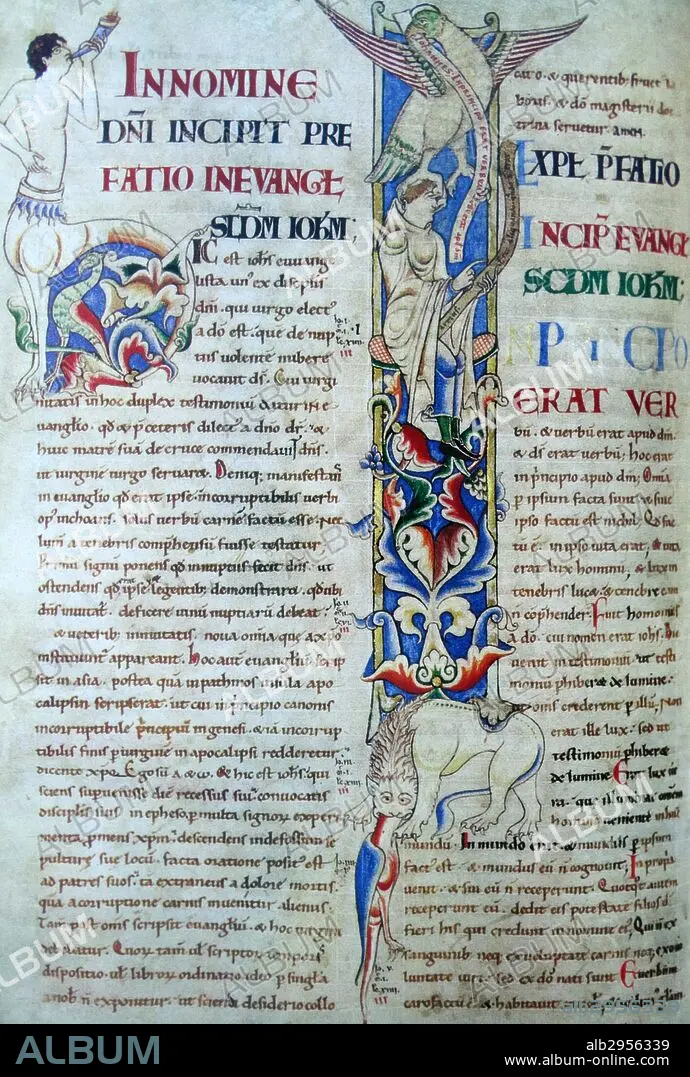 INNOMINE
DN̄I INCIPIT PRE
FATIO INEVANGL̄
SCDM IOH̄M;
IC est ioh̄s euuange
lista un' ex discipulis
dn̄i. qui uirgo elect'
a dō est. que de nup
tiis uolente nubere
uocauit ds̄. Cui uirgi
nitatis in hoc duplex testimoniū datur in e
uanglio. qd̄ & p̄ ceteris dilect' a dn̄o dr̄. &
huic matrē suā de cruce commendauit dn̄s.
ut uirginē uirgo seruaret. Deniq; manifestans
in euanglio qd̄ erat ipse incorruptibilis uerbi
op' inchoans. solus uerbū carnē factū esse. nec
lum̄ a tenebris comphensū fuisse testatur.
Primū signū ponens qd̄ in nuptiis fecit dn̄s. ut
ostendens qd̄ erat ipse legentib; demonstraret. qd̄ ubi
dn̄s inuitat'. deficere uinū nuptiarū debeat.
& ueterib; inmutatis. noua omīa que a xp̄o
instituunt' appareant. Hoc aut̄ euangliū scrip
sit in asia. postea quā in pathmos insula apo
calipsin scripserat. ut cui in p̄ncipio canonis
incorruptibile p̄ncipiū in genesi. & iā incorrup
tibilis finis p uirginē in apocalipsi redderetur.
dicente xp̄o. Ego sū a & ω. & hic est ioh̄s. qui
sciens supuenisse diē recessus sui. conuocatis
discipulis suis in epheso. p multa signorꝝ experi
menta. pmens xp̄m. descendens in defossum se
pulturę suę locū. facta oratione posit' est
ad patres suos. tā extraneus a dolore mortis.
quā a corruptione carnis inuenitur alienus.
Tam̄ post om̄s scripsit euangliū. & hoc uirgini
debebatur. Quorꝝ tam̄ ul̄ scriptorꝝ temporū
dispositio. ul̄ librorꝝ ordinatio ideo p singula
a nob' n̄ exponitur. ut sciendi desiderio collo
cato. & querentib; fruct' la
boris. & dō magisterii doc
trina seruetur. amen.
EXPL̄ P̄FATIO
INCIP̄ EVANGL̄
SCDM IOH̄M;
N PRINCIPIO
ERAT VER
bū. & uerbū erat apud dm̄.
& ds̄ erat uerbū; hoc erat
in p̄ncipio apud dm̄; Omīa
p ipsum facta sunt. & sine
ipso factū est nichil. Qd̄ fac
tū ē. in ipso uita erat. & uita
erat lux hominū. & lux in
tenebris lucet. & tenebre eam
n̄ cōphenderꝝ. Fuit homo mis
a dō. cui nomen erat ioh̄s. hic
uenit in testimoniū ut testi
moniū phiberet de lumine.
ut om̄s crederent p illū. non
erat ille lux. sed ut
testimoniū phiberet
de lumine. Erat lux ue
ra. que illuminat omnem
hominē uenientē in hunc
mundū. In mundo erat. & mundus p ipsum
fact' est. & mundus eū n̄ cognouit; In propia
uenit. & sui eū n̄ receperunt. Quotqt̄ autem
receperunt eū. dedit eis potestatē filios dī
fieri. his qui credunt in nomine ei'; Qui n̄ ex
sanguinib; neq; ex uoluptate carnis neq; ex uo
luntate uiri. sed ex dō nati sunt. Et uerbum
caro factū ē. & habitauit
ALBUM
ALBUM
ab2956339
www.album-online.com